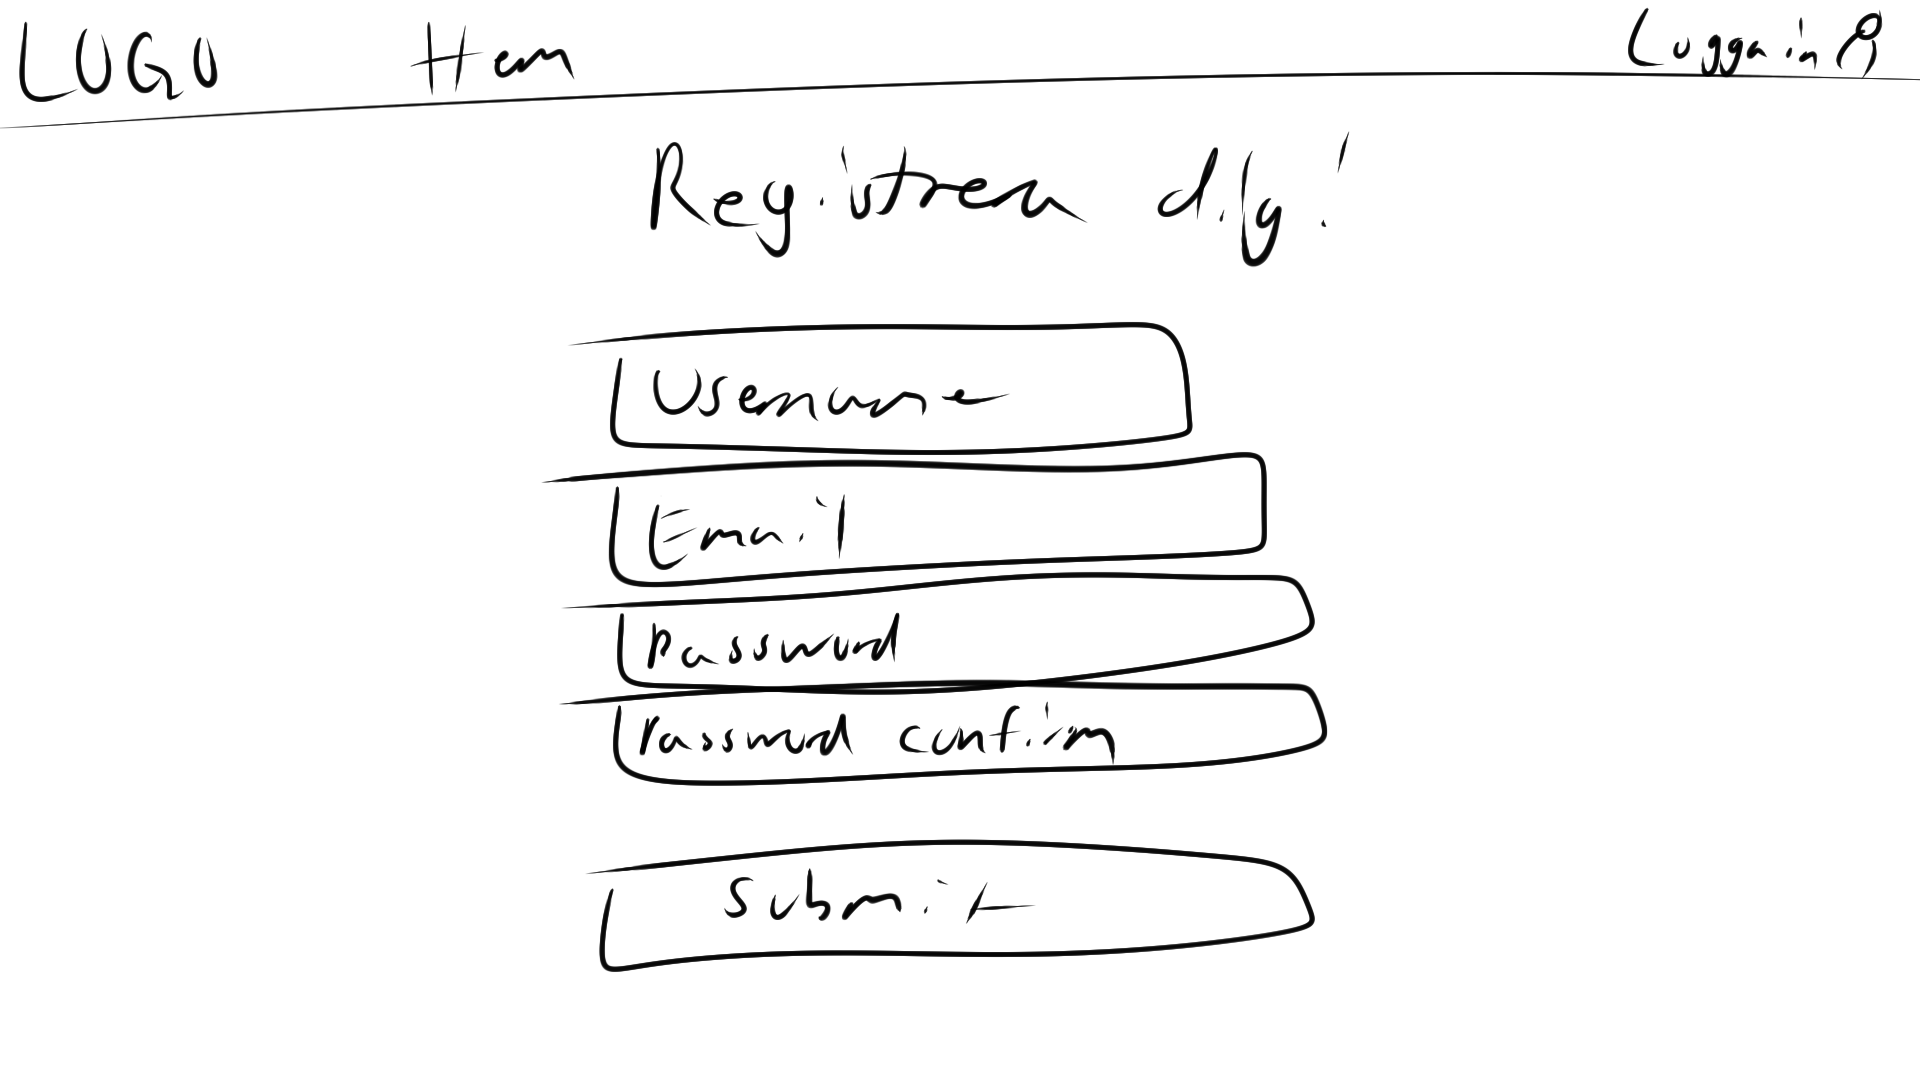 LOGO Hem Logga in
Registrera dig!
Username
Email
Password
Password confirm
Submit